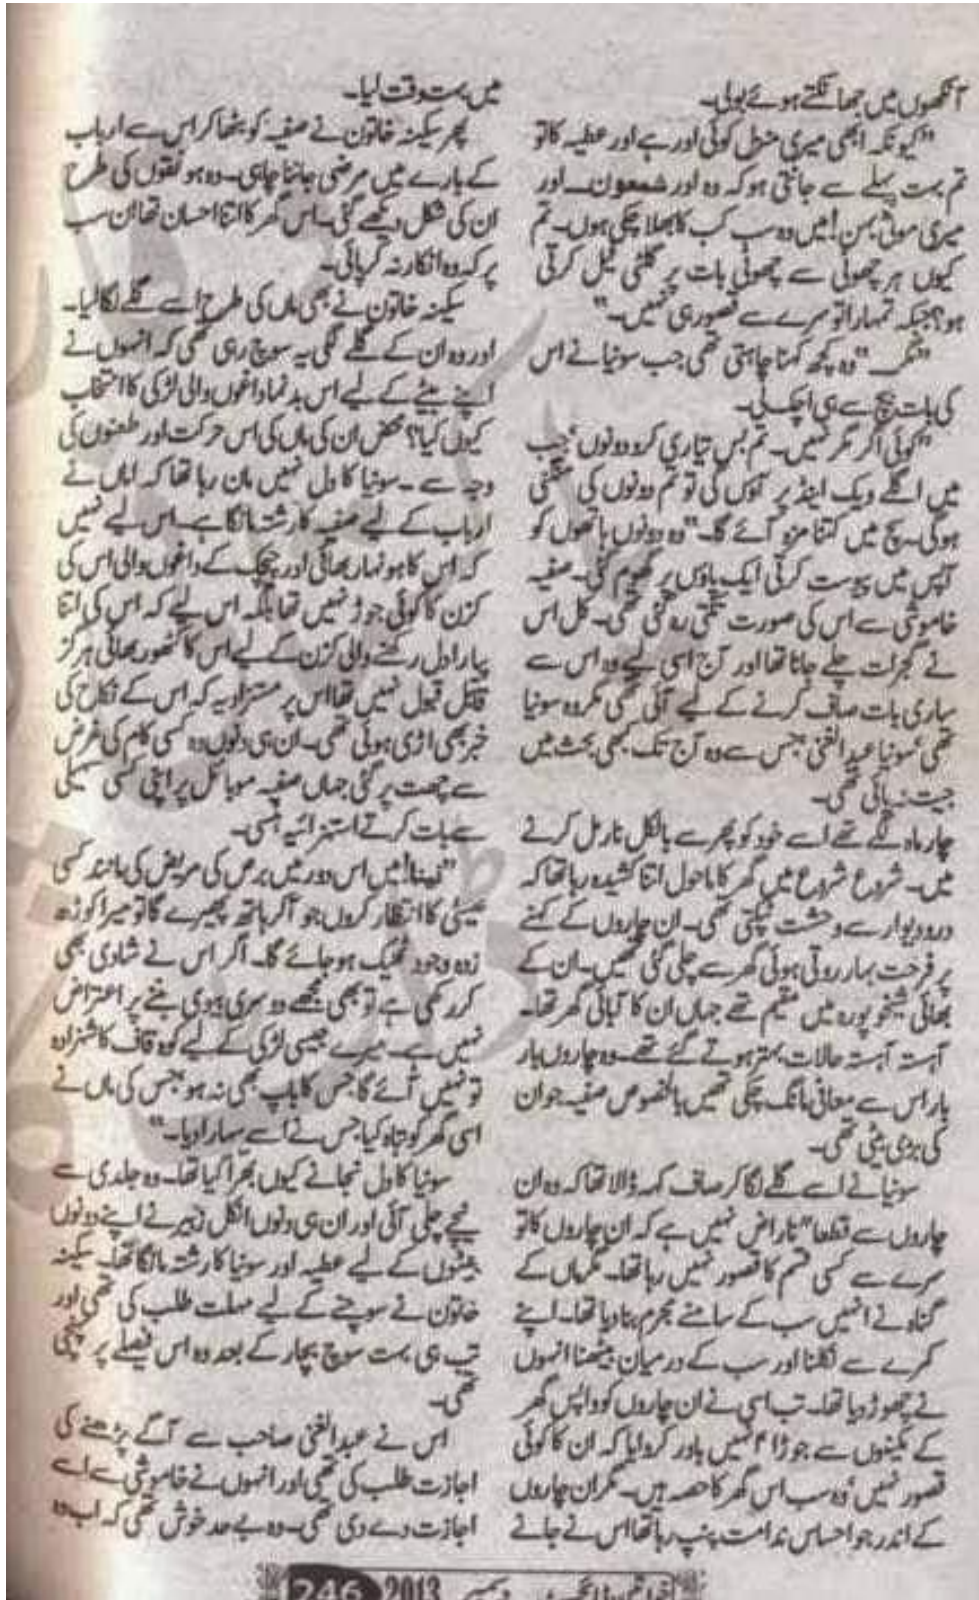 آنکھوں میں جھانکتے ہوئے بولی۔
"کیونکہ ابھی میری منزل کوئی اور ہے اور عطیہ کا تو
تم بہت پہلے سے جانتی ہو کہ وہ اور شمعون۔ اور
میری موٹی بہن! میں وہ سب کب کا بھلا چکی ہوں۔ تم
کیوں ہر چھوٹی سے چھوٹی بات پر گلٹی فیل کرتی
ہو؟ جبکہ تمہارا تو سرے سے قصور ہی نہیں۔"
"مگر۔" وہ کچھ کہنا چاہتی تھی جب سونیا نے اس
کی بات بیچ سے ہی اچک لی۔
"کوئی اگر مگر نہیں۔ تم بس تیاری کرو دونوں' جب
میں اگلے ویک اینڈ پر آؤں گی تو تم دونوں کی منگنی
ہو گی۔ سچ میں کتنا مزہ آئے گا۔" وہ دونوں ہاتھوں کو
آپس میں پیوست کرتی ایک پاؤں پر گھوم گئی۔ صفیہ
خاموشی سے اس کی صورت تکتی رہ گئی تھی۔ کل اس
نے گجرات چلے جانا تھا اور آج اسی لیے وہ اس سے
ساری بات صاف کرنے کے لیے آئی تھی مگر وہ سونیا
تھی' سونیا عبدالغنی جس سے وہ آج تک کبھی بحث میں
جیت نہ پائی تھی۔
چار ماہ لگے تھے اسے خود کو پھر سے بالکل نارمل کرنے
میں۔ شروع شروع میں گھر کا ماحول اتنا کشیدہ رہا تھا کہ
در و دیوار سے وحشت ٹپکتی تھی۔ ان چاروں کے کہنے
پر فرحت بہار روتی ہوئی گھر سے چلی گئی تھیں۔ ان کے
بھائی شیخوپورہ میں مقیم تھے جہاں ان کا آبائی گھر تھا۔
آہستہ آہستہ حالات بہتر ہوتے گئے تھے۔ وہ چاروں بار
بار اس سے معافی مانگ چکی تھیں بالخصوص صفیہ جو ان
کی بڑی بیٹی تھی۔
سونیا نے اسے گلے لگا کر صاف کہہ ڈالا تھا کہ وہ ان
چاروں سے قطعا" ناراض نہیں ہے کہ ان چاروں کا تو
سرے سے کسی قسم کا قصور نہیں رہا تھا۔ مگر ماں کے
گناہ نے انہیں سب کے سامنے مجرم بنا دیا تھا۔ اپنے
کمرے سے نکلنا اور سب کے درمیان بیٹھنا انہوں
نے چھوڑ دیا تھا۔ تب اسی نے ان چاروں کو واپس گھر
کے مکینوں سے جوڑا' انہیں باور کروایا کہ ان کا کوئی
قصور نہیں' وہ سب اس گھر کا حصہ ہیں۔ مگر ان چاروں
کے اندر جو احساس ندامت پنپ رہا تھا اس نے جانے
میں بہت وقت لیا۔
پھر سکینہ خاتون نے صفیہ کو بٹھا کر اس سے ارباب
کے بارے میں مرضی جاننا چاہی۔ وہ ہونقوں کی طرح
ان کی شکل دیکھے گئی۔ اس گھر کا اتنا احسان تھا ان سب
پر کہ وہ انکار نہ کر پائی۔
سکینہ خاتون نے بھی ماں کی طرح اسے گلے لگا لیا۔
اور وہ ان کے گلے لگی یہ سوچ رہی تھی کہ انہوں نے
اپنے بیٹے کے لیے اس بدنما داغوں والی لڑکی کا انتخاب
کیوں کیا؟ محض ان کی ماں کی اس حرکت اور طعنوں کی
وجہ سے۔ سونیا کا دل نہیں مان رہا تھا کہ اماں نے
ارباب کے لیے صفیہ کا رشتہ مانگا ہے۔ اس لیے نہیں
کہ اس کا ہونہار بھائی اور چیچک کے داغوں والی اس کی
کزن کا کوئی جوڑ نہیں تھا بلکہ اس لیے کہ اس کی اتنا
پیارا دل رکھنے والی کزن کے لیے اس کا کٹھور بھائی ہرگز
قابل قبول نہیں تھا اس پر مستزاد یہ کہ اس کے نکاح کی
خبر بھی اڑی ہوئی تھی۔ ان ہی دنوں وہ کسی کام کی غرض
سے چھت پر گئی جہاں صفیہ موبائل پر اپنی کسی سہیلی
سے بات کرتے استہزائیہ ہنسی۔
"نینا! میں اس دور میں برص کی مریض کی مانند کسی
عیسیٰ کا انتظار کروں جو آ کر ہاتھ پھیرے گا تو میرا کوڑھ
زدہ وجود ٹھیک ہو جائے گا۔ اگر اس نے شادی بھی
کر رکھی ہے تو بھی مجھے دوسری بیوی بننے پر اعتراض
نہیں ہے۔ میرے جیسی لڑکی کے لیے کوہ قاف کا شہزادہ
تو نہیں آئے گا جس کا باپ بھی نہ ہو' جس کی ماں نے
اسی گھر کو تباہ کیا جس نے اسے سہارا دیا۔"
سونیا کا دل نجانے کیوں بھر آ گیا تھا۔ وہ جلدی سے
نیچے چلی آئی اور ان ہی دنوں انکل زبیر نے اپنے دونوں
بیٹوں کے لیے عطیہ اور سونیا کا رشتہ مانگا تھا۔ سکینہ
خاتون نے سوچنے کے لیے مہلت طلب کی تھی اور
تب ہی بہت سوچ بچار کے بعد وہ اس فیصلے پر پہنچی
تھی۔
اس نے عبدالغنی صاحب سے آگے پڑھنے کی
اجازت طلب کی تھی اور انہوں نے خاموشی سے اسے
اجازت دے دی تھی۔ وہ بے حد خوش تھی کہ اب وہ
246 2013